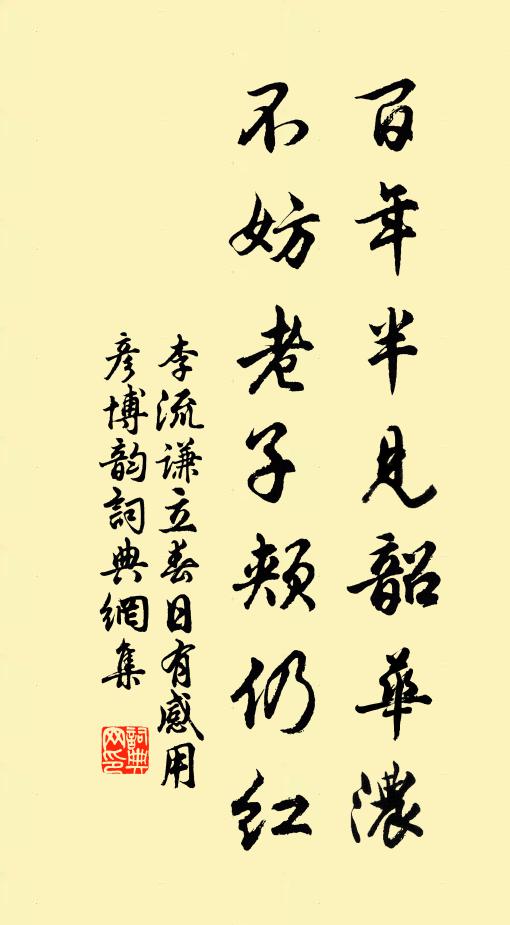 百年半見韶華濃
不妨老子頰仍紅
李流謙立春日有感用
彦博韵詞典網集
詞典網印